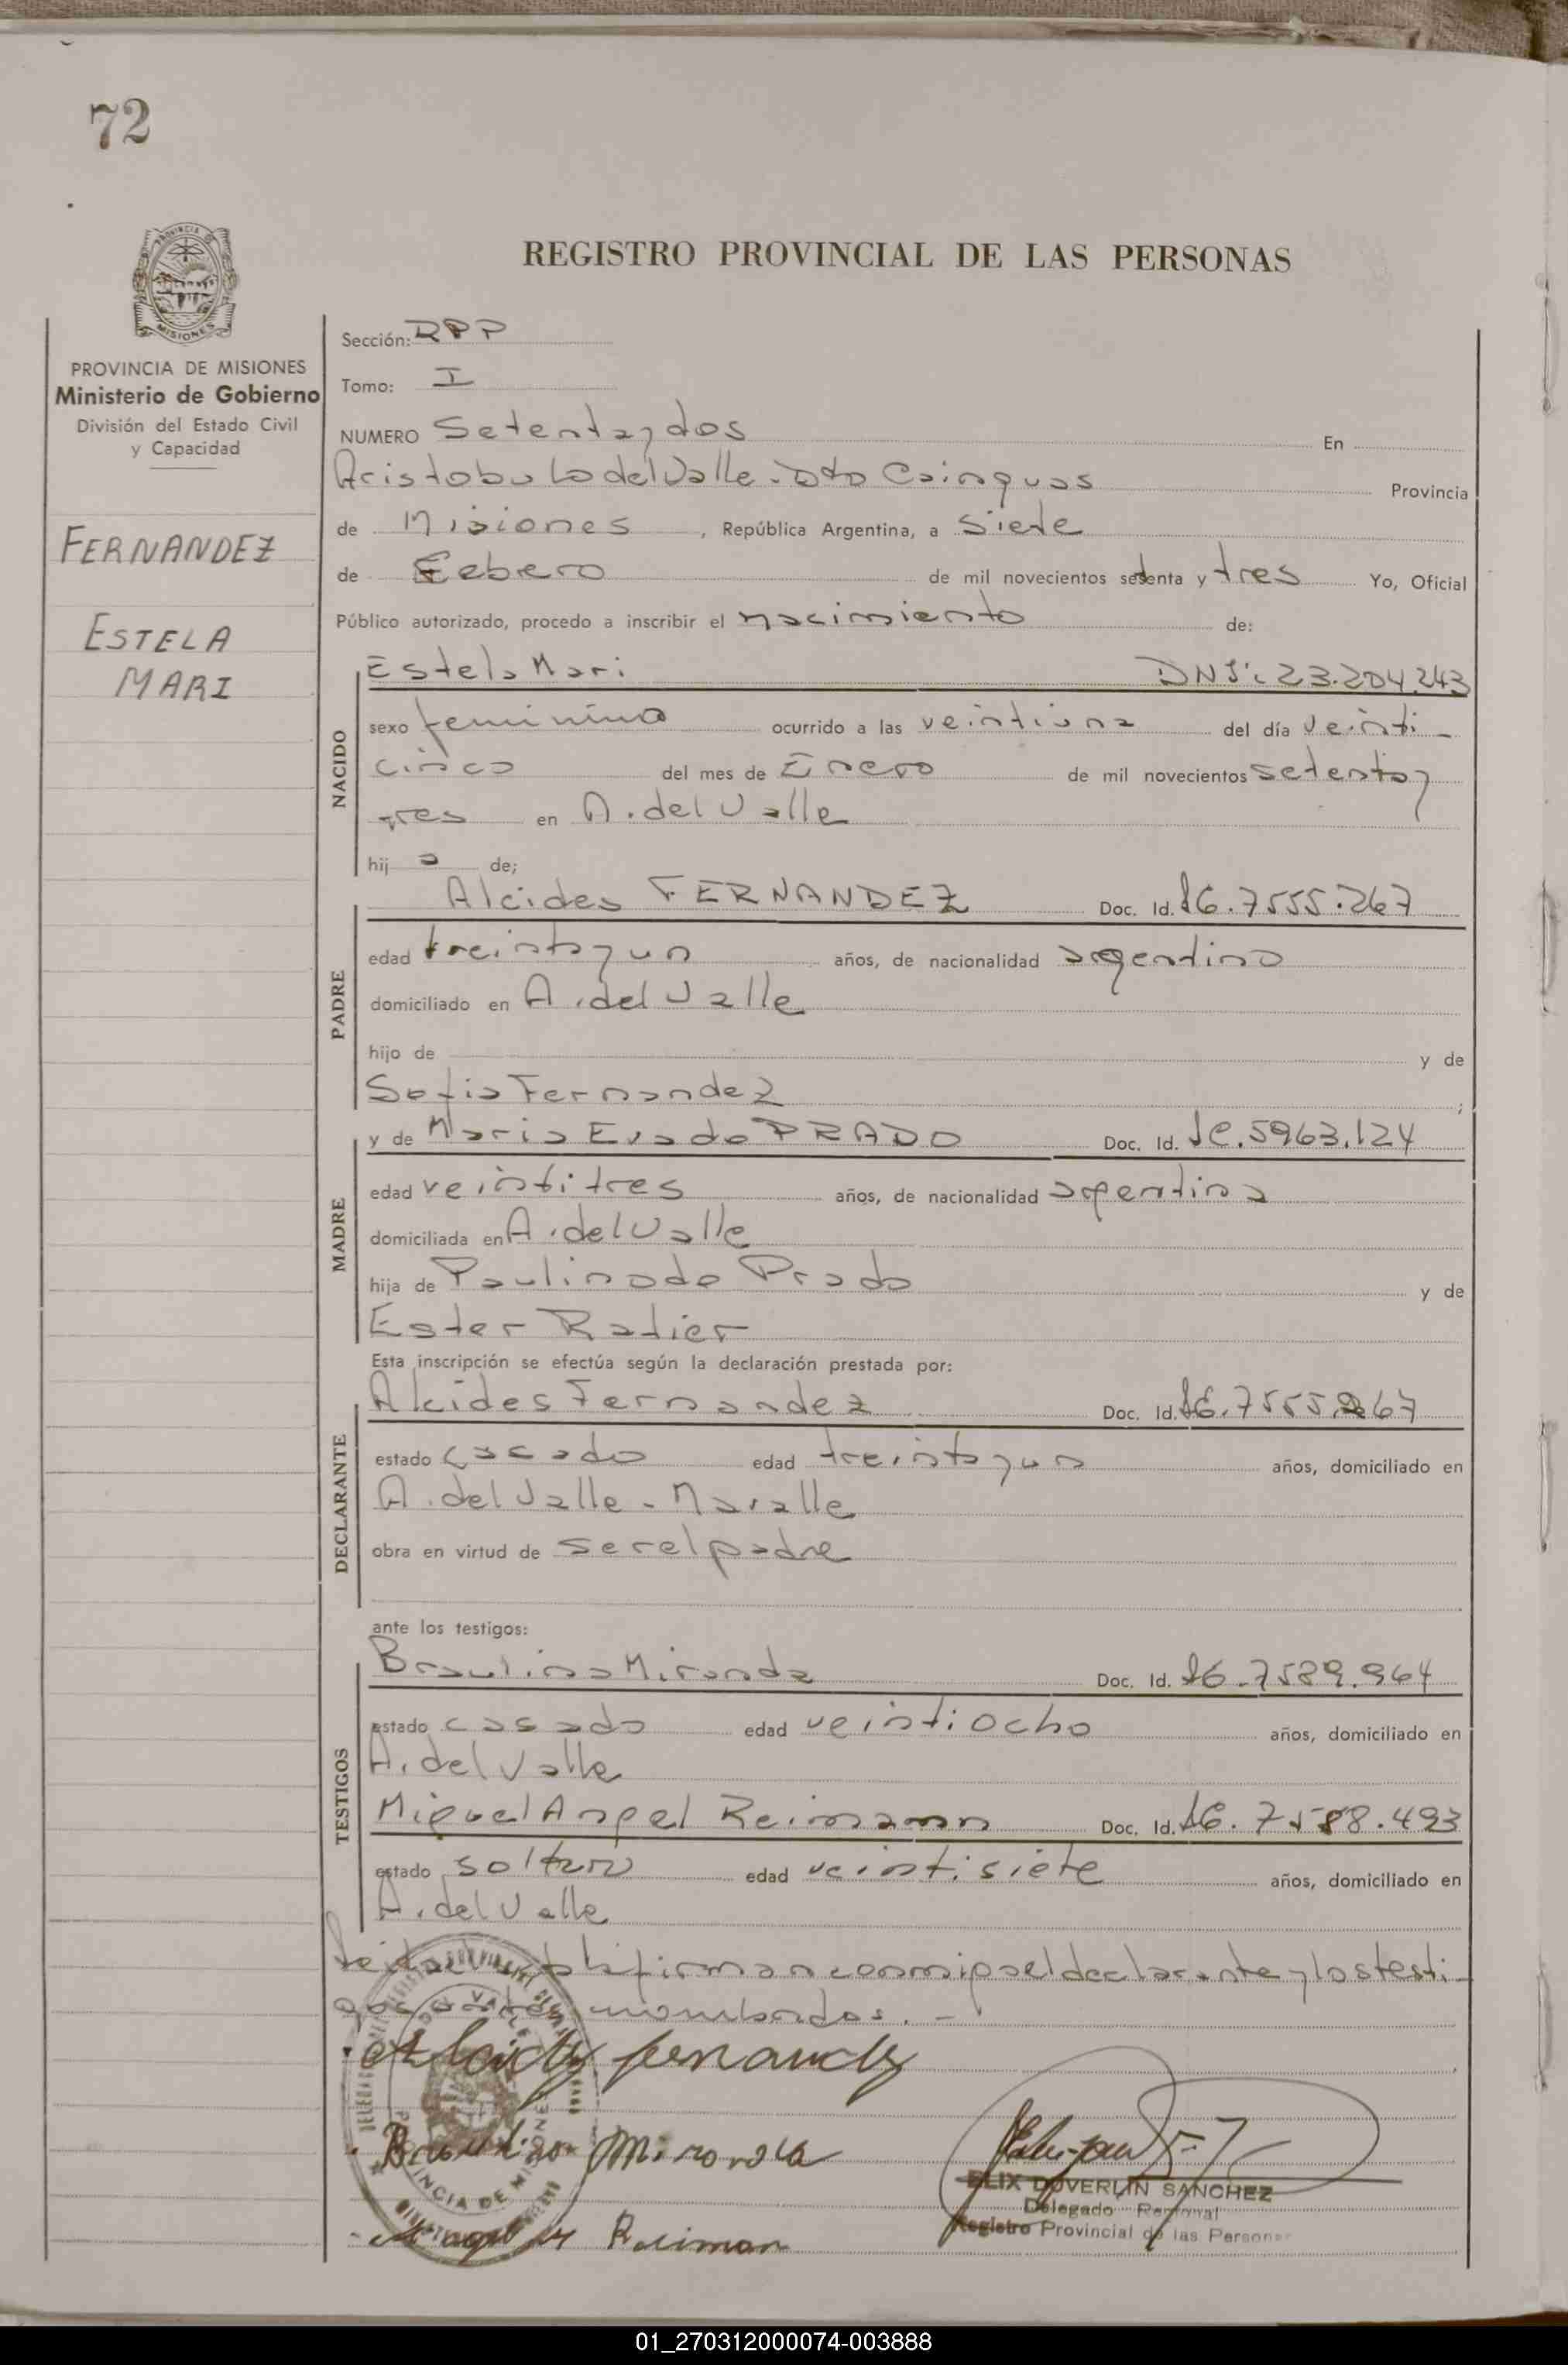 72
REGISTRO PROVINCIAL DE LAS PERSONAS
PROVINCIA DE MISIONES
Ministerio de Gobierno
División del Estado Civil
y Capacidad
FERNANDEZ
ESTELA
MARI
Sección: RPP
Tomo: I
NUMERO Setenta y dos En
Aristobulo del Valle - Dto Cainguas Provincia
de Misiones, República Argentina, a Siete
de Febero de mil novecientos setenta y tres Yo, Oficial
Público autorizado, procedo a inscribir el nacimiento de:
NACIDO
Estela Mari DNI: 23.204.243
sexo femenino ocurrido a las veintiuna del día veinti-
cinco del mes de Enero de mil novecientos setenta y
tres en A. del Valle
hij a de;
PADRE
Alcides FERNANDEZ Doc. Id. 7555.267
edad treinta y un años, de nacionalidad argentino
domiciliado en A. del Valle
hijo de y de
Sofia Fernandez ;
MADRE
y de Maria Eva do PRADO Doc. Id. 5963.124
edad veintitres años, de nacionalidad argentina
domiciliada en A. del Valle
hija de Paulino do Prado y de
Ester Ratier
Esta inscripción se efectúa según la declaración prestada por:
DECLARANTE
Alcides Fernandez Doc. Id. 7555.267
estado casado edad treinta y un años, domiciliado en
A. del Valle -
obra en virtud de ser el padre
ante los testigos:
TESTIGOS
Braulino Miranda Doc. Id. 7589.964
estado casado edad veintiocho años, domiciliado en
A. del Valle
Miguel Angel Reimann Doc. Id. 7588.493
estado soltero edad veintisiete años, domiciliado en
A. del Valle
firman conmigo el declarante y los testi-
gos nombrados. -
Braulino Miranda
Reiman
ELIX DUVERLIN SANCHEZ
Delegado Personal
Registro Provincial de las Personas
01_270312000074-003888